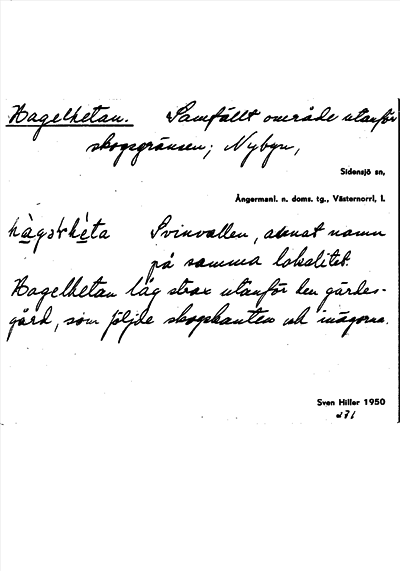 Hagelhetan. Samfällt område utanför
skogsgränsen; Nybyn,
Sidensjö sn,
Ångermanl. n. doms. tg., Västernorrl. l.
Svinvallen, annat namn
på samma lokalitet.
Hagelhetan låg strax utanför den gärdes-
gård, som följde skogskanten och inägorna.
Sven Hiller 1950